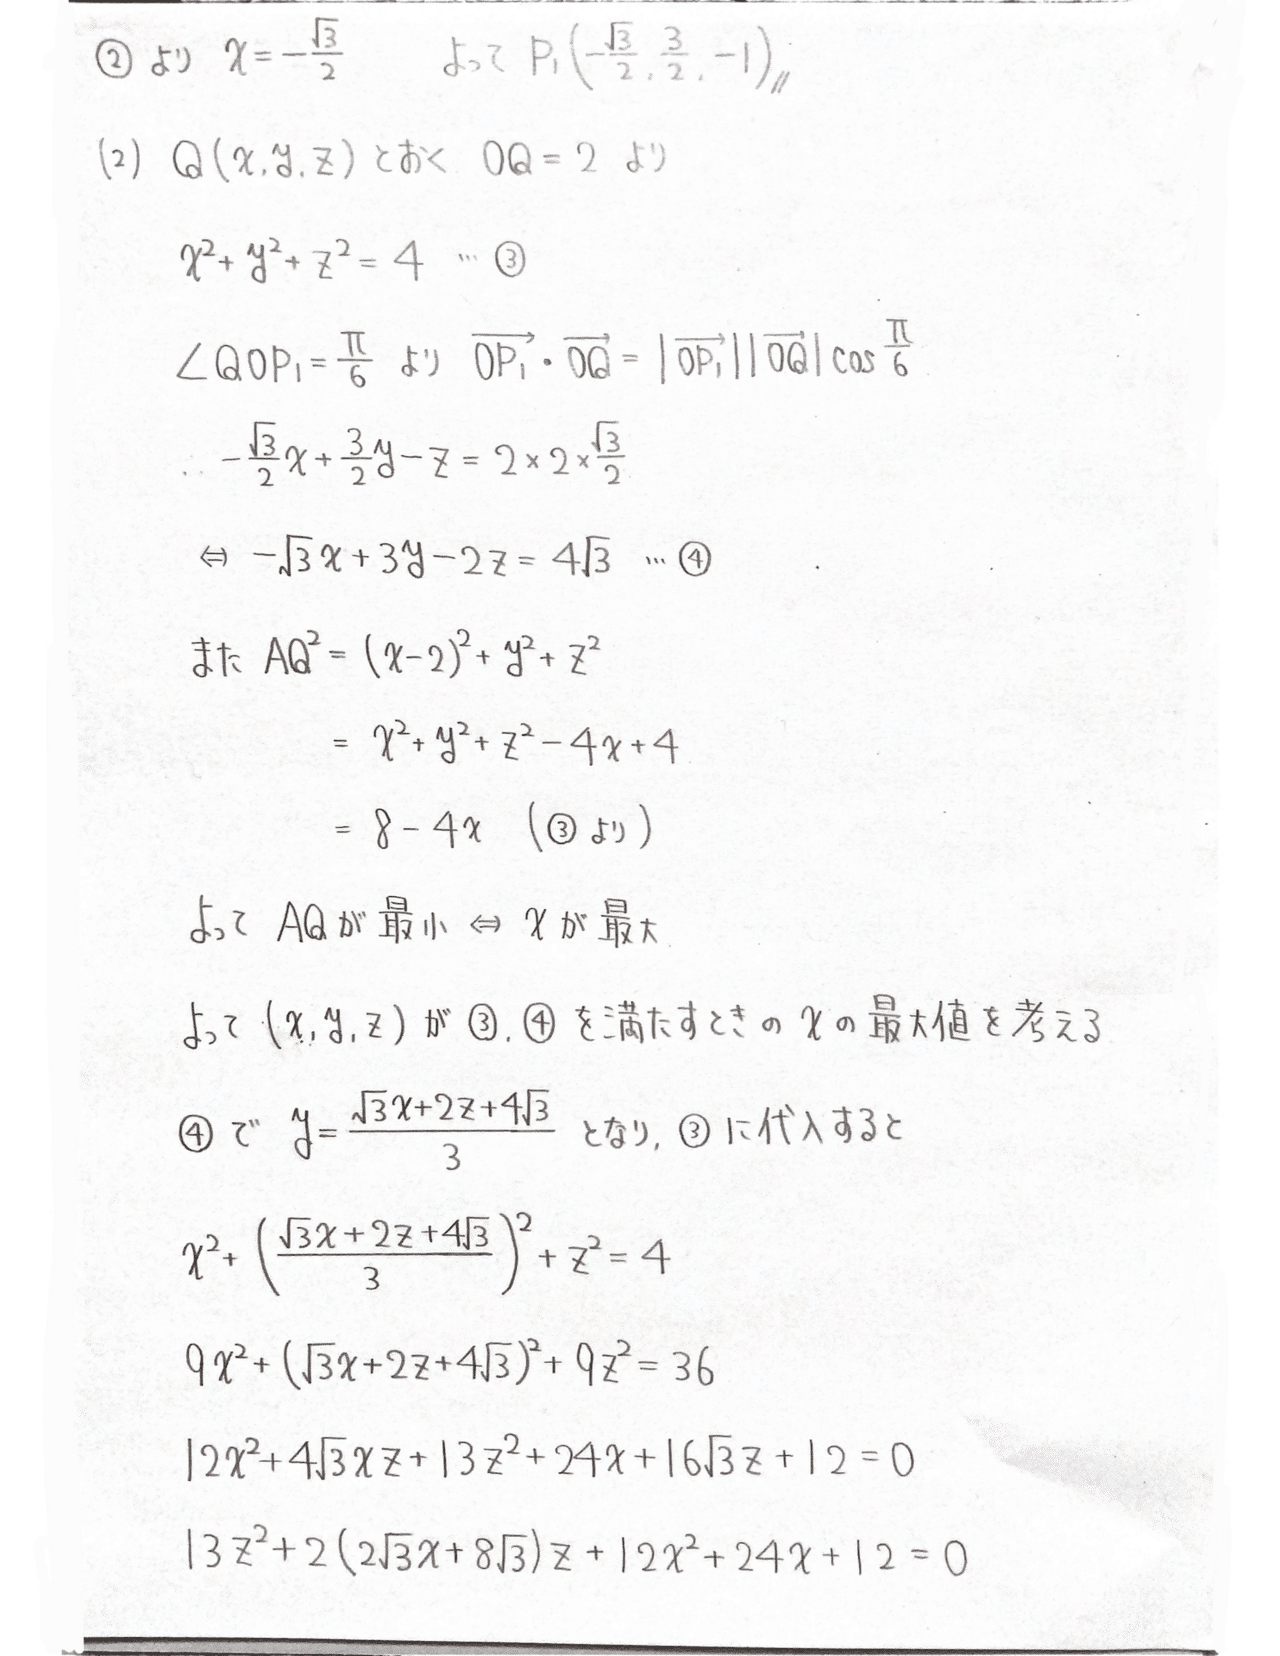 ② より x = -√3/2 よって P₁(-√3/2, 3/2, -1)〃
(2) Q(x, y, z) とおく OQ = 2 より
x² + y² + z² = 4 … ③
∠QOP₁ = π/6 より OP₁→・OQ→ = |OP₁→||OQ→| cos π/6
∴ -√3/2 x + 3/2 y - z = 2 × 2 × √3/2
⇔ -√3x + 3y - 2z = 4√3 … ④
また AQ² = (x-2)² + y² + z²
= x² + y² + z² - 4x + 4
= 8 - 4x (③ より)
よって AQ が 最小 ⇔ x が 最大
よって (x, y, z) が ③, ④ を満たすときの x の最大値を考える
④ で y = (√3x+2z+4√3)/3 となり, ③ に代入すると
x² + ((√3x+2z+4√3)/3)² + z² = 4
9x² + (√3x+2z+4√3)² + 9z² = 36
12x² + 4√3xz + 13z² + 24x + 16√3z + 12 = 0
13z² + 2(2√3x + 8√3)z + 12x² + 24x + 12 = 0